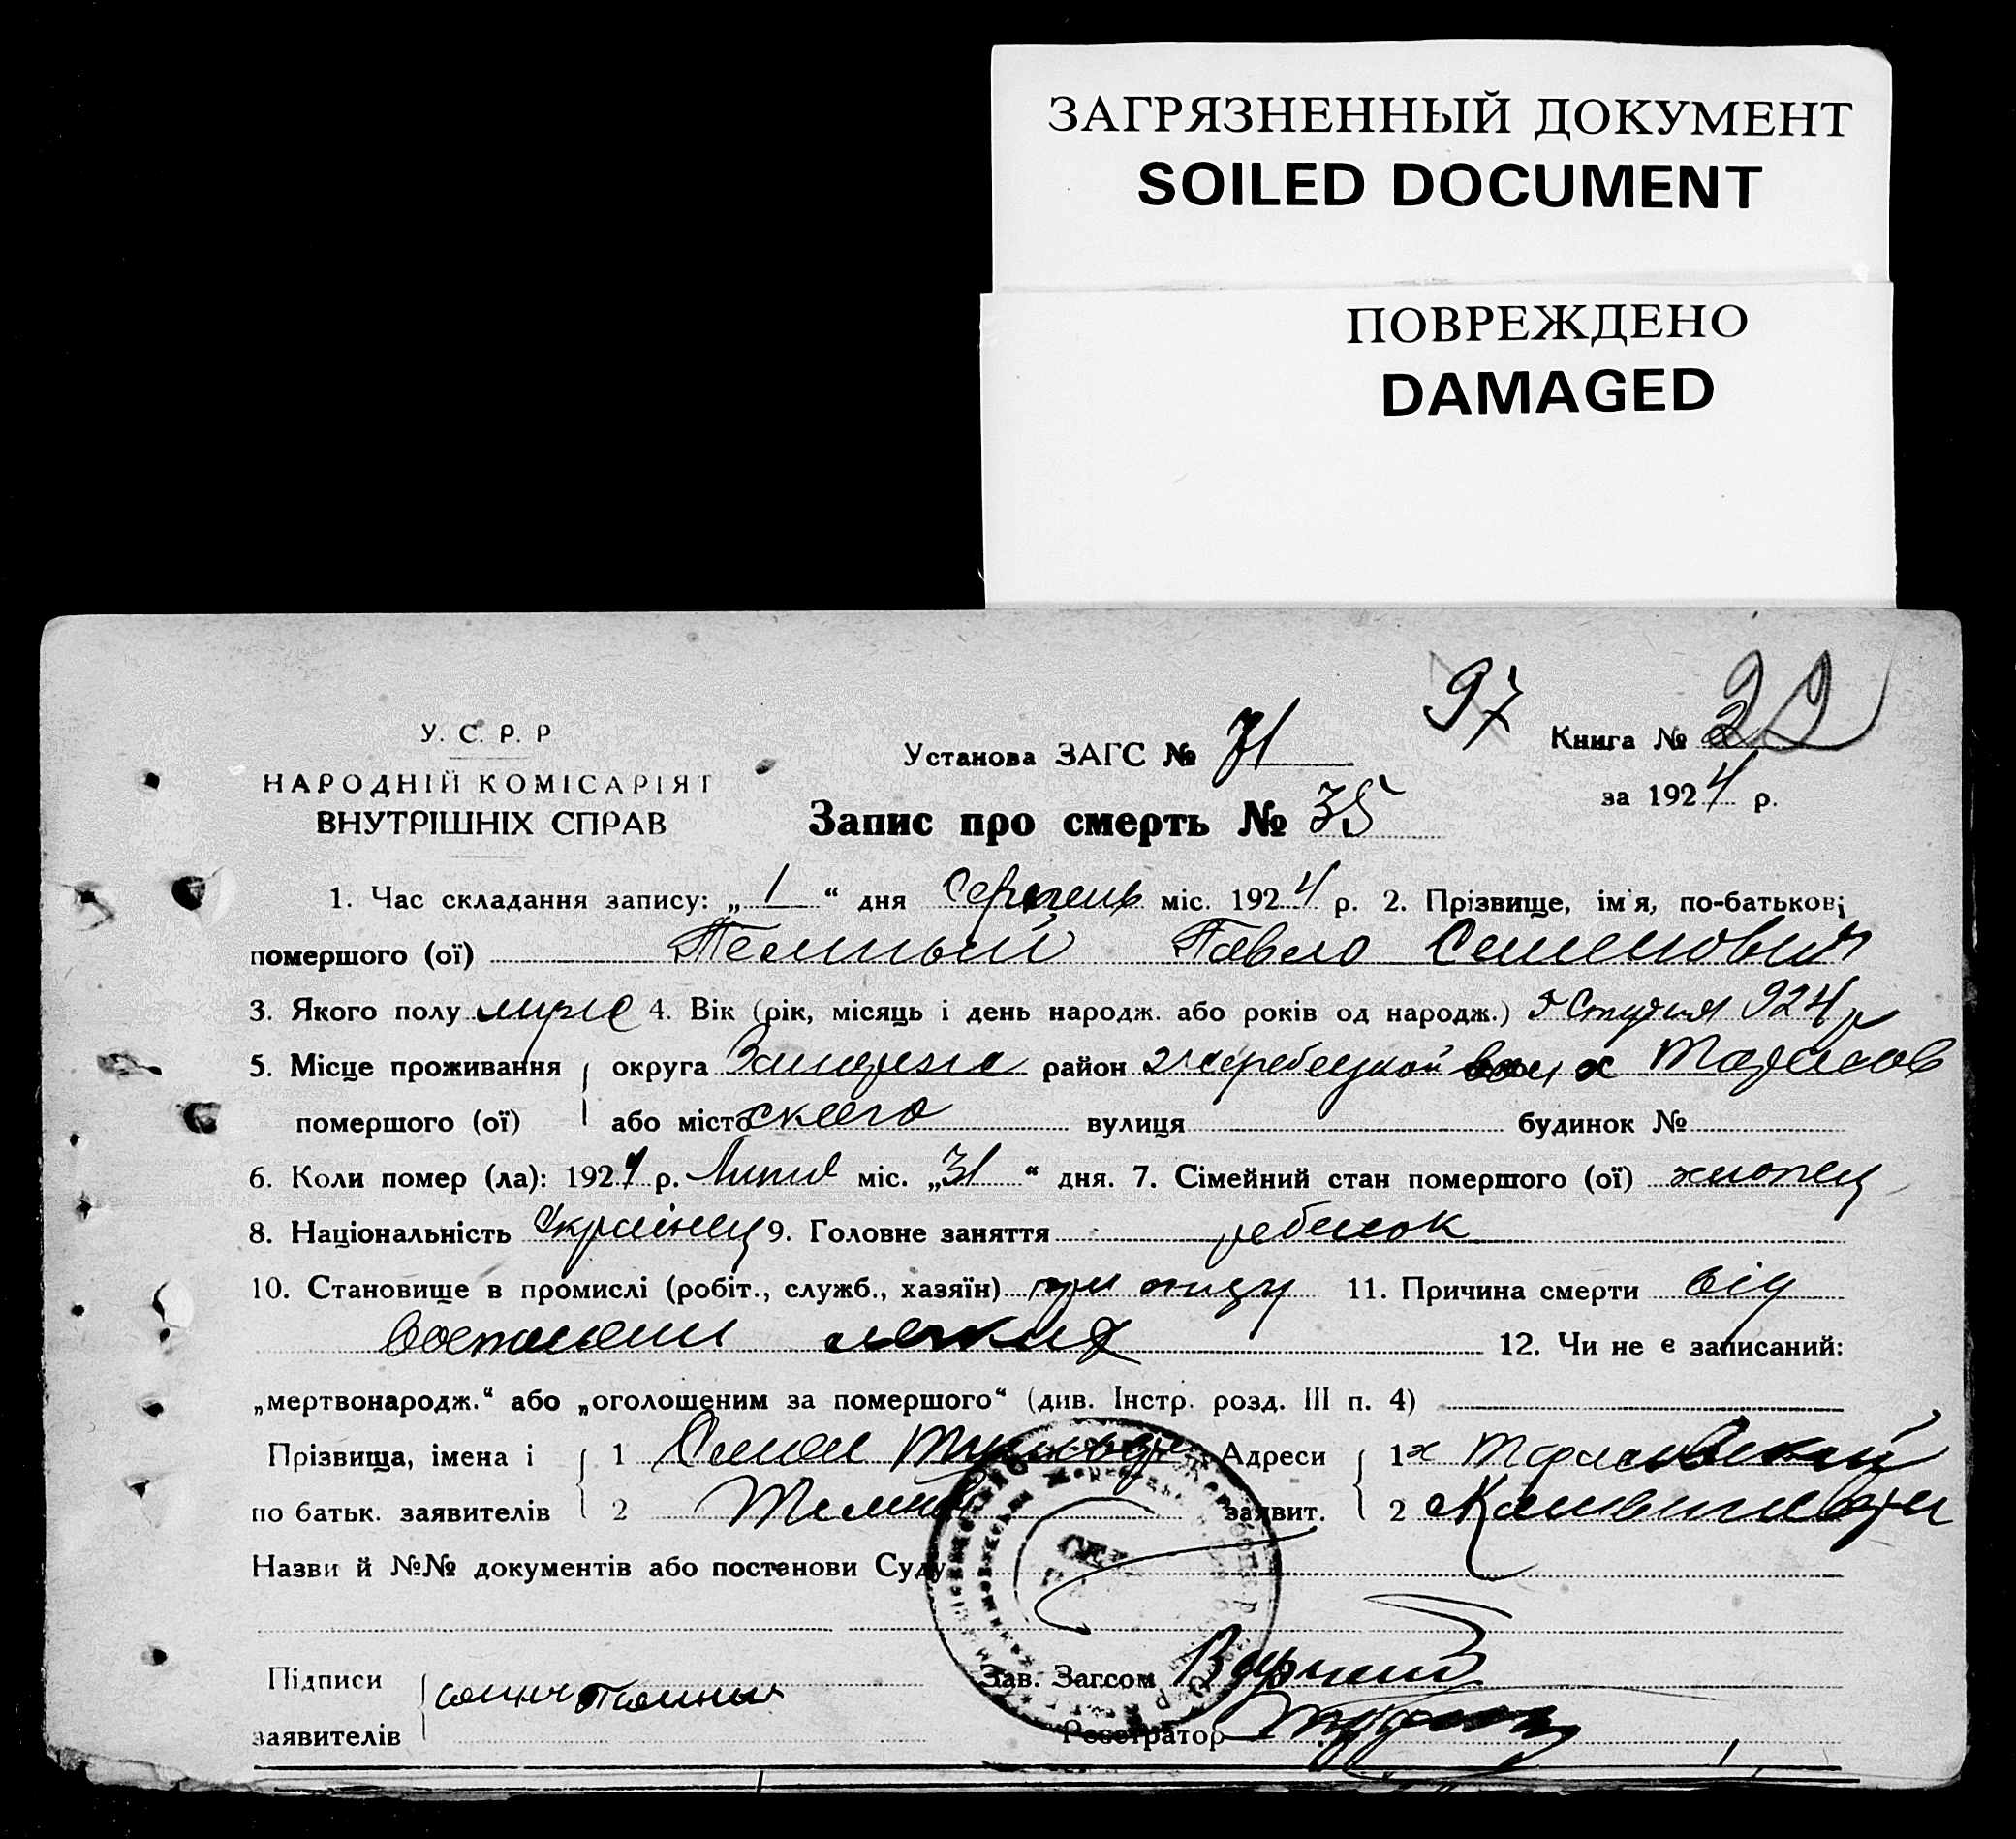 ЗАГРЯЗНЕННЫЙ ДОКУМЕНТ
SOILED DOCUMENT
ПОВРЕЖДЕНО
DAMAGED
97
У. С. Р. Р
НАРОДНІЙ КОМІСАРІЯТ
ВНУТРІШНІХ СПРАВ
Установа ЗАГС № 71
Книга № 22
за 1924 р.
Запис про смерть № 35
1. Час складання запису: „1“ дня Серпень міс. 1924 р. 2. Прізвище, ім'я, по-батькові
помершого (ої) Темный Павло Семенович
3. Якого полу муже 4. Вік (рік, місяць і день народж. або років од народж.) 924 р
5. Місце проживання округа район х Тарасов
помершого (ої) або місто ского вулиця будинок №
6. Коли помер (ла): 1924 р. Липня міс. „31“ дня. 7. Сімейний стан помершого (ої) хлопец
8. Національність Українец 9. Головне заняття ребенок
10. Становище в промислі (робіт., служб., хазяїн) при отцу 11. Причина смерти від
легких 12. Чи не є записаний:
„мертвонародж.“ або „оголошеним за помершого“ (див. Інстр. розд. III п. 4)
Прізвища, імена і 1 Семен Адреси 1 х Тарасовский
по батьк. заявителів 2 заявит. 2
Назви й №№ документів або постанови Суду
Підписи Зав. Загсом
заявителів Реєстратор